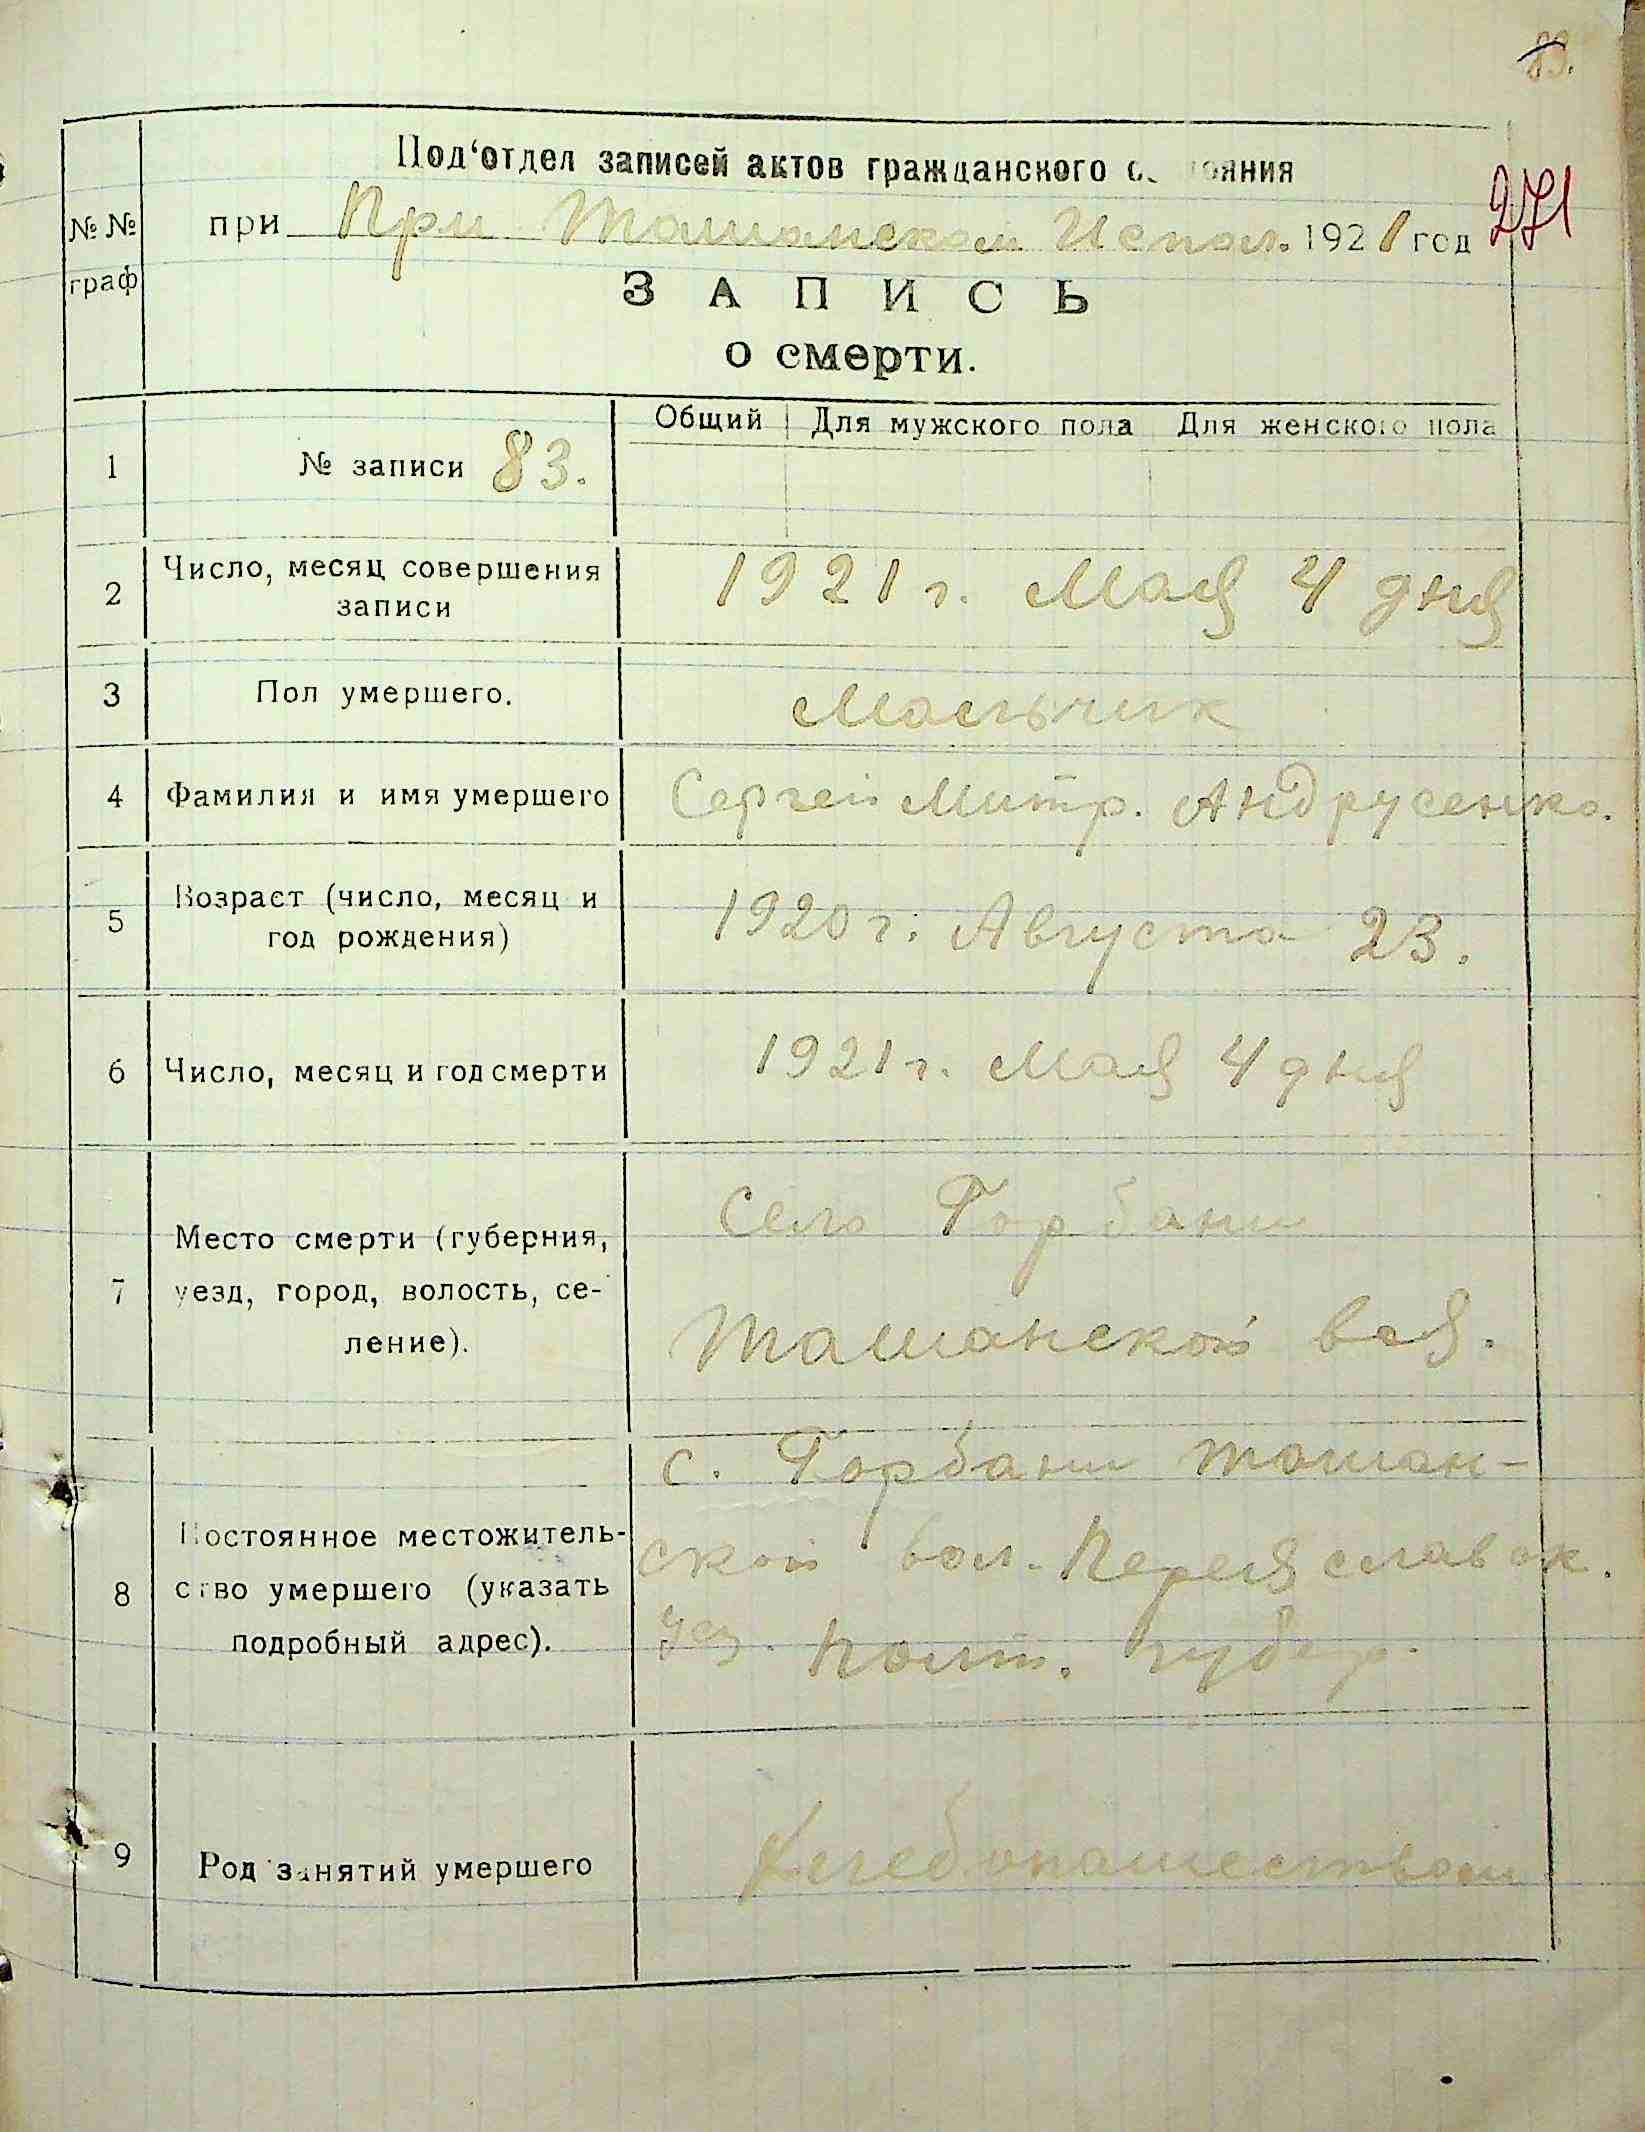 83.
Под‘отдел записей актов гражданского состояния
№ № граф
при При Ташанском Испол. 1921 год
271
ЗАПИСЬ
о смерти.
Общий Для мужского пола Для женского пола
1 № записи 83.
2 Число, месяц совершения
записи
1921 г. Мая 4 дня
3 Пол умершего. Мальчик
4 Фамилия и имя умершего Сергей Митр. Андрусенко.
5 Возраст (число, месяц и
год рождения)
1920 г. Августа 23.
6 Число, месяц и год смерти 1921 г. Мая 4 дня
7 Место смерти (губерния,
уезд, город, волость, се-
ление).
Село Горбани
Ташанской вол.
8 Постоянное местожитель-
ство умершего (указать
подробный адрес).
с. Горбани Ташан-
ской вол. Переяславск.
уез. Полт. губер.
9 Род занятий умершего Хлебопашеством